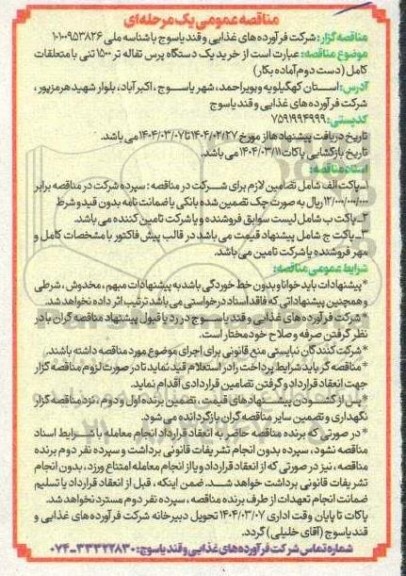 مناقصه عمومی یک مرحله‌ای
مناقصه گزار: شرکت فرآورده‌های غذایی و قند یاسوج با شناسه ملی ۱۰۱۰۰۹۵۳۸۲۶
موضوع مناقصه: عبارت است از خرید یک دستگاه پرس تفاله تر ۱۵۰۰ تنی با متعلقات
کامل (دست دوم آماده بکار)
آدرس: استان کهگیلویه و بویراحمد، شهر یاسوج، اکبرآباد، بلوار شهید هرمزپور،
شرکت فرآورده های غذایی و قند یاسوج
کدپستی: ۷۵۹۱۹۹۴۹۹۹
تاریخ دریافت پیشنهادها از مورخ ۱۴۰۴/۰۲/۲۷ تا ۱۴۰۴/۰۳/۰۷ می باشد.
تاریخ بازگشایی پاکات ۱۴۰۴/۰۳/۱۱ می باشد.
اسناد مناقصه:
۱_پاکت الف شامل تضامین لازم برای شرکت در مناقصه: سپرده شرکت در مناقصه برابر
۱۲/۰۰۰/۰۰۰/۰۰۰ ریال به صورت چک تضمین شده بانکی یا ضمانت نامه بدون قید و شرط
۲_پاکت ب شامل لیست سوابق فروشنده و یا شرکت تامین کننده می باشد.
۳_پاکت ج شامل پیشنهاد قیمت می باشد در قالب پیش فاکتور با مشخصات کامل و
مهر فروشنده یا شرکت تامین می باشد.
شرایط عمومی مناقصه:
*پیشنهادات باید خوانا و بدون خط خوردگی باشد به پیشنهادات مبهم، مخدوش، شرطی
و همچنین پیشنهاداتی که فاقد اسناد درخواستی می باشد ترتیب اثر داده نخواهد شد.
*شرکت فرآورده های غذایی و قند یاسوج در رد یا قبول پیشنهاد مناقصه گران با در
نظر گرفتن صرفه و صلاح خود مختار است.
*شرکت کنندگان نبایستی منع قانونی برای اجرای موضوع مورد مناقصه داشته باشند.
*مناقصه گر باید شرایط پرداخت را در استعلام قید نماید تا در صورت لزوم مناقصه گزار
جهت انعقاد قرارداد و گرفتن تضامین قراردادی اقدام نماید.
*پس از گشودن پیشنهادهای قیمت، تضمین برنده اول و دوم، نزد مناقصه گزار
نگهداری و تضمین سایر مناقصه گران بازگردانده می شود.
*در صورتی که برنده مناقصه حاضر به انعقاد قرارداد انجام معامله با شرایط اسناد
مناقصه نشود، سپرده بدون انجام تشریفات قانونی برداشت و سپرده نفر دوم برنده
مناقصه، نیز در صورتی که از انعقاد قرارداد و یا از انجام معامله امتناع ورزد، بدون انجام
تشریفات قانونی برداشت خواهد شد. ضمن اینکه، قبل از انعقاد قرارداد یا تسلیم
ضمانت انجام تعهدات از طرف برنده مناقصه، سپرده نفر دوم مسترد نخواهد شد.
پاکات تا پایان وقت اداری ۱۴۰۴/۰۳/۰۷ تحویل دبیرخانه شرکت فرآورده های غذایی و
قند یاسوج (آقای خلیلی) گردد.
شماره تماس شرکت فرآورده های غذایی و قند یاسوج: ۳۳۳۲۲۸۳۰-۰۷۴